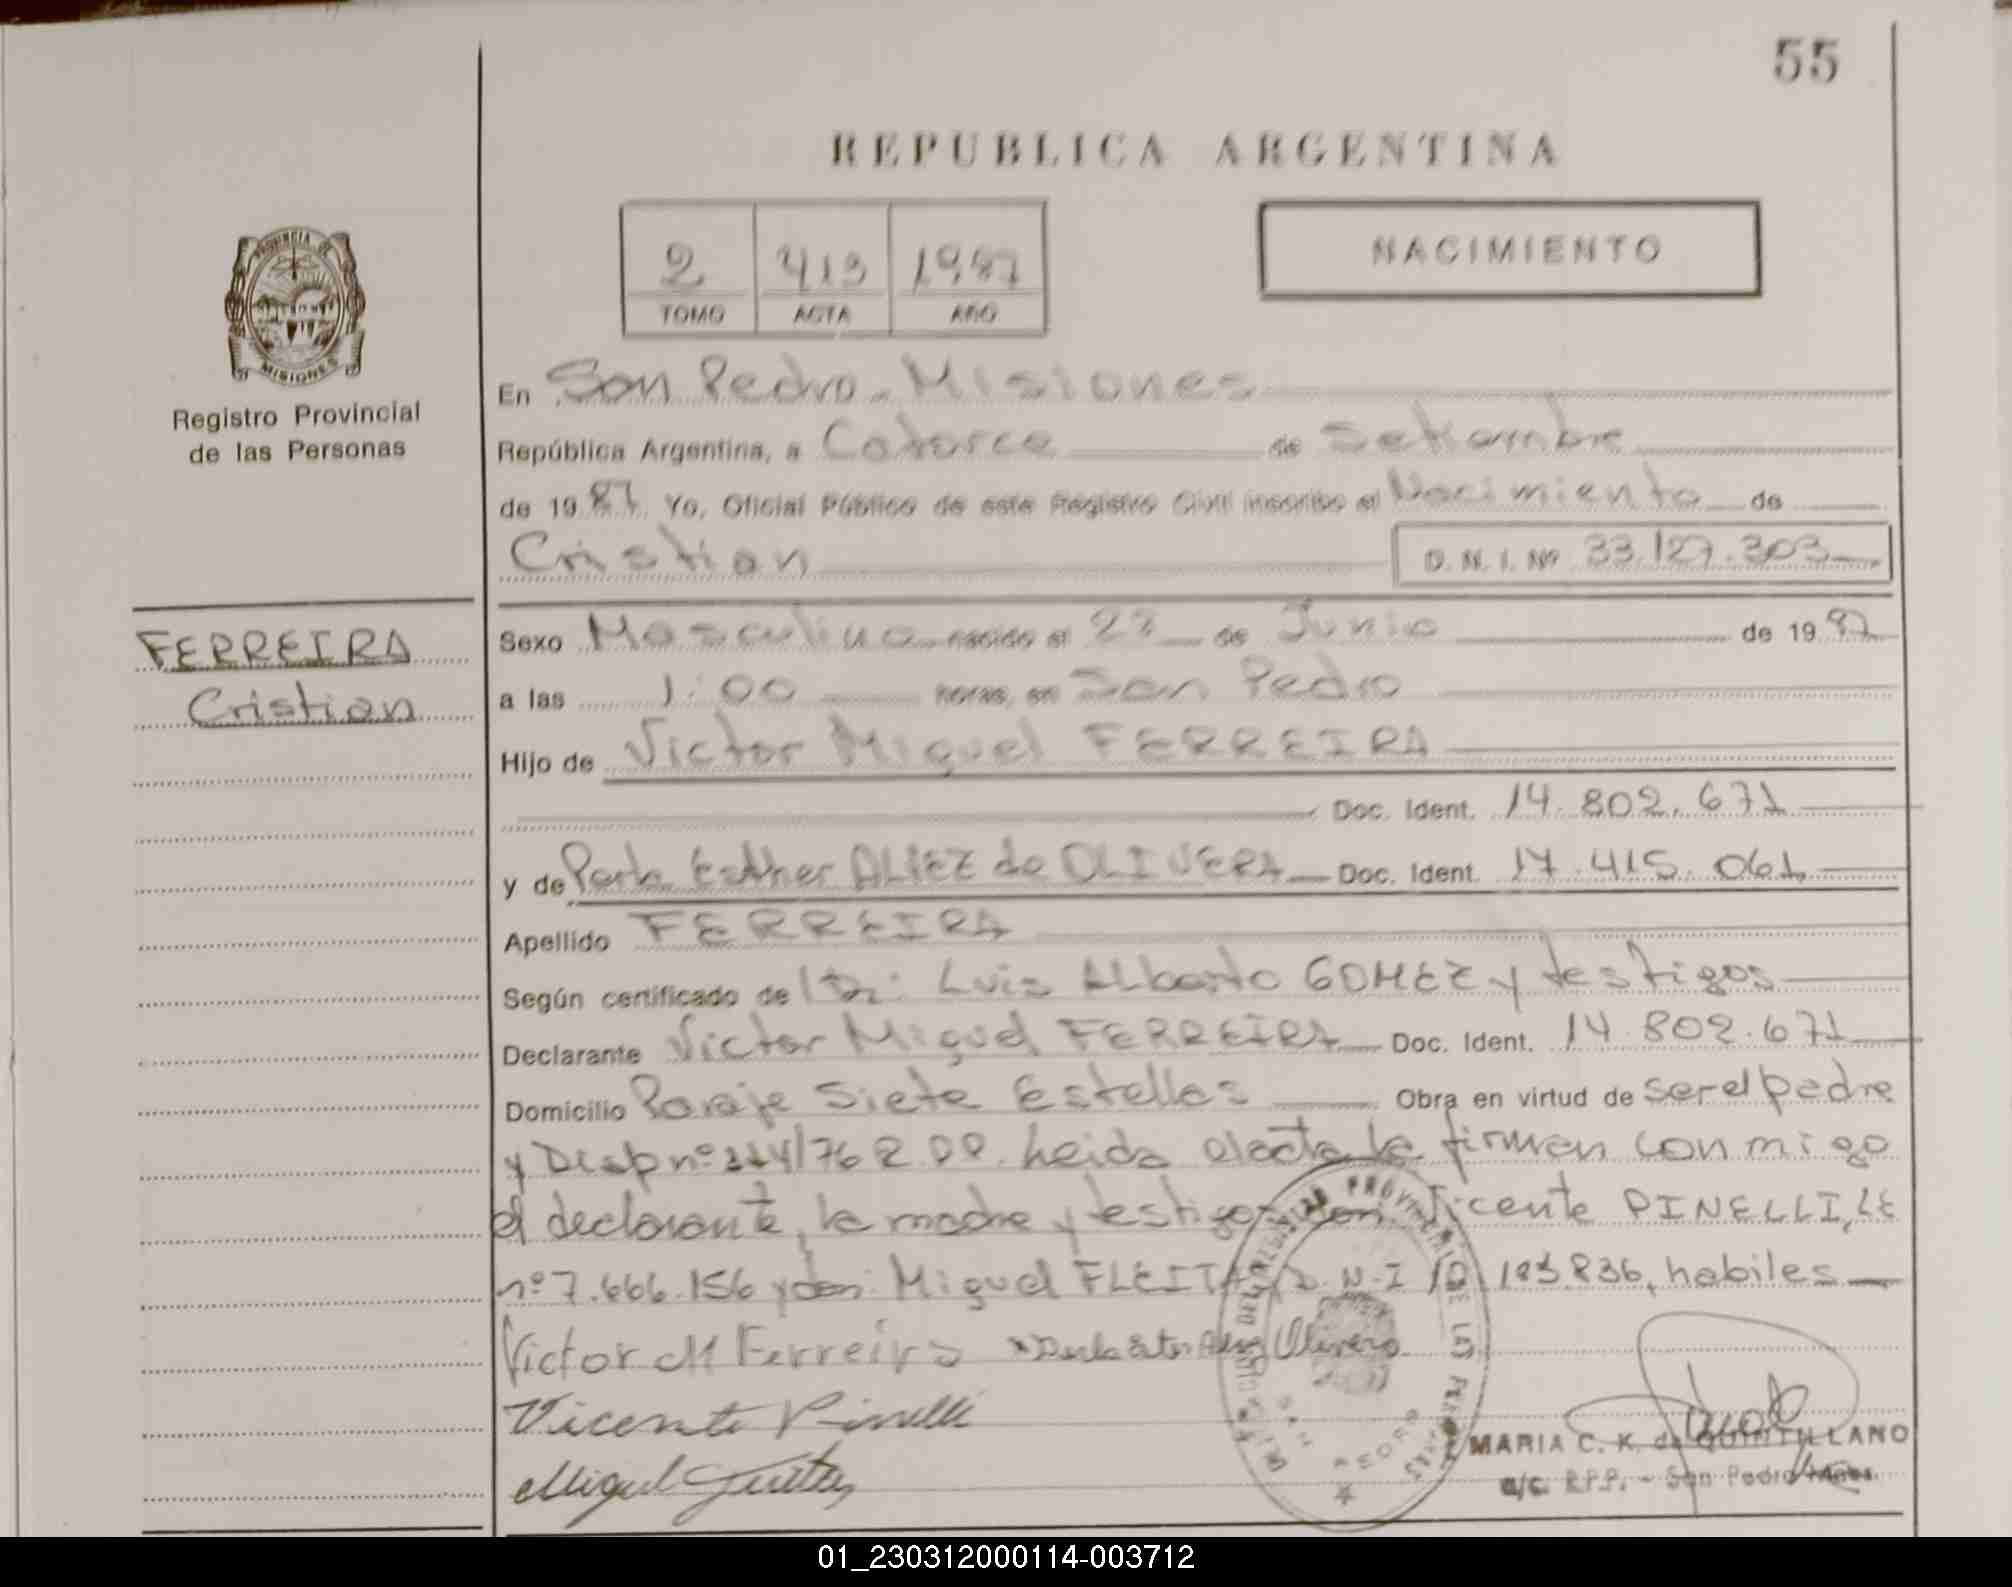 55
REPUBLICA ARGENTINA
2 413 1987
TOMO ACTA AÑO
NACIMIENTO
PROVINCIA DE
MISIONES
Registro Provincial
de las Personas
En San Pedro - Misiones
República Argentina, a Catorce de Setiembre
de 19 87 Yo, Oficial Público de este Registro Civil inscribo el Nacimiento de
Cristian D. N. I. Nº 33.127.303
FERREIRA
Cristian
Sexo Masculino nacido el 27 de Junio de 19 87
a las 1:00 horas, en San Pedro
Hijo de Victor Miguel FERREIRA
Doc. Ident. 14.802.671
y de Perla Esther ALVEZ de OLIVERA Doc. Ident. 17.415.061
Apellido FERREIRA
Según certificado del Dr: Luis Alberto GOMEZ y testigos
Declarante Victor Miguel FERREIRA Doc. Ident. 14.802.671
Domicilio Paraje Siete Estellas Obra en virtud de ser el padre
y Disp nº /76 R.P.P. Leida el acta la firman conmigo
el declarante, la madre y testigos don Vicente PINELLI, LE
nº 7.666.156 y don Miguel FLEITAS D.N.I 183836, habiles
Victor M Ferreira Perla Ester Olivera
Vicente Pinelli
Miguel
SAN PEDRO
MARIA C. K. de QUINTILLANO
a/c. R.P.P. - San Pedro Mnes.
01_230312000114-003712